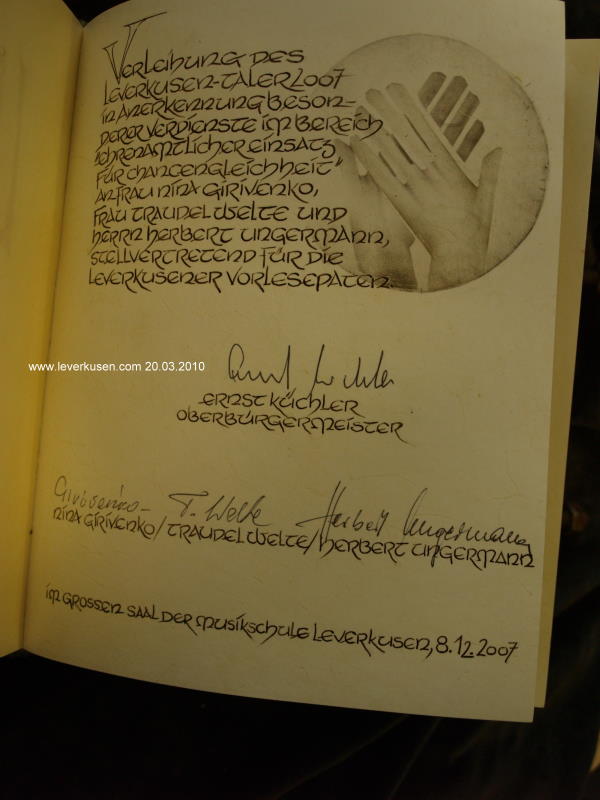 Verleihung des
Leverkusen-Taler 2007
in Anerkennung beson-
derer Verdienste im Bereich
"Ehrenamtlicher Einsatz
für Chancengleichheit"
an Frau Nina Girivenko,
Frau Traudel Welte und
Herrn Herbert Ungermann,
stellvertretend für die
Leverkusener Vorlesepaten.
www.leverkusen.com 20.03.2010
Ernst Küchler
Ernst Küchler
Oberbürgermeister
Girivenko T. Welte Herbert Ungermann
Nina Girivenko/Traudel Welte/Herbert Ungermann
im Grossen Saal der Musikschule Leverkusen, 8.12.2007